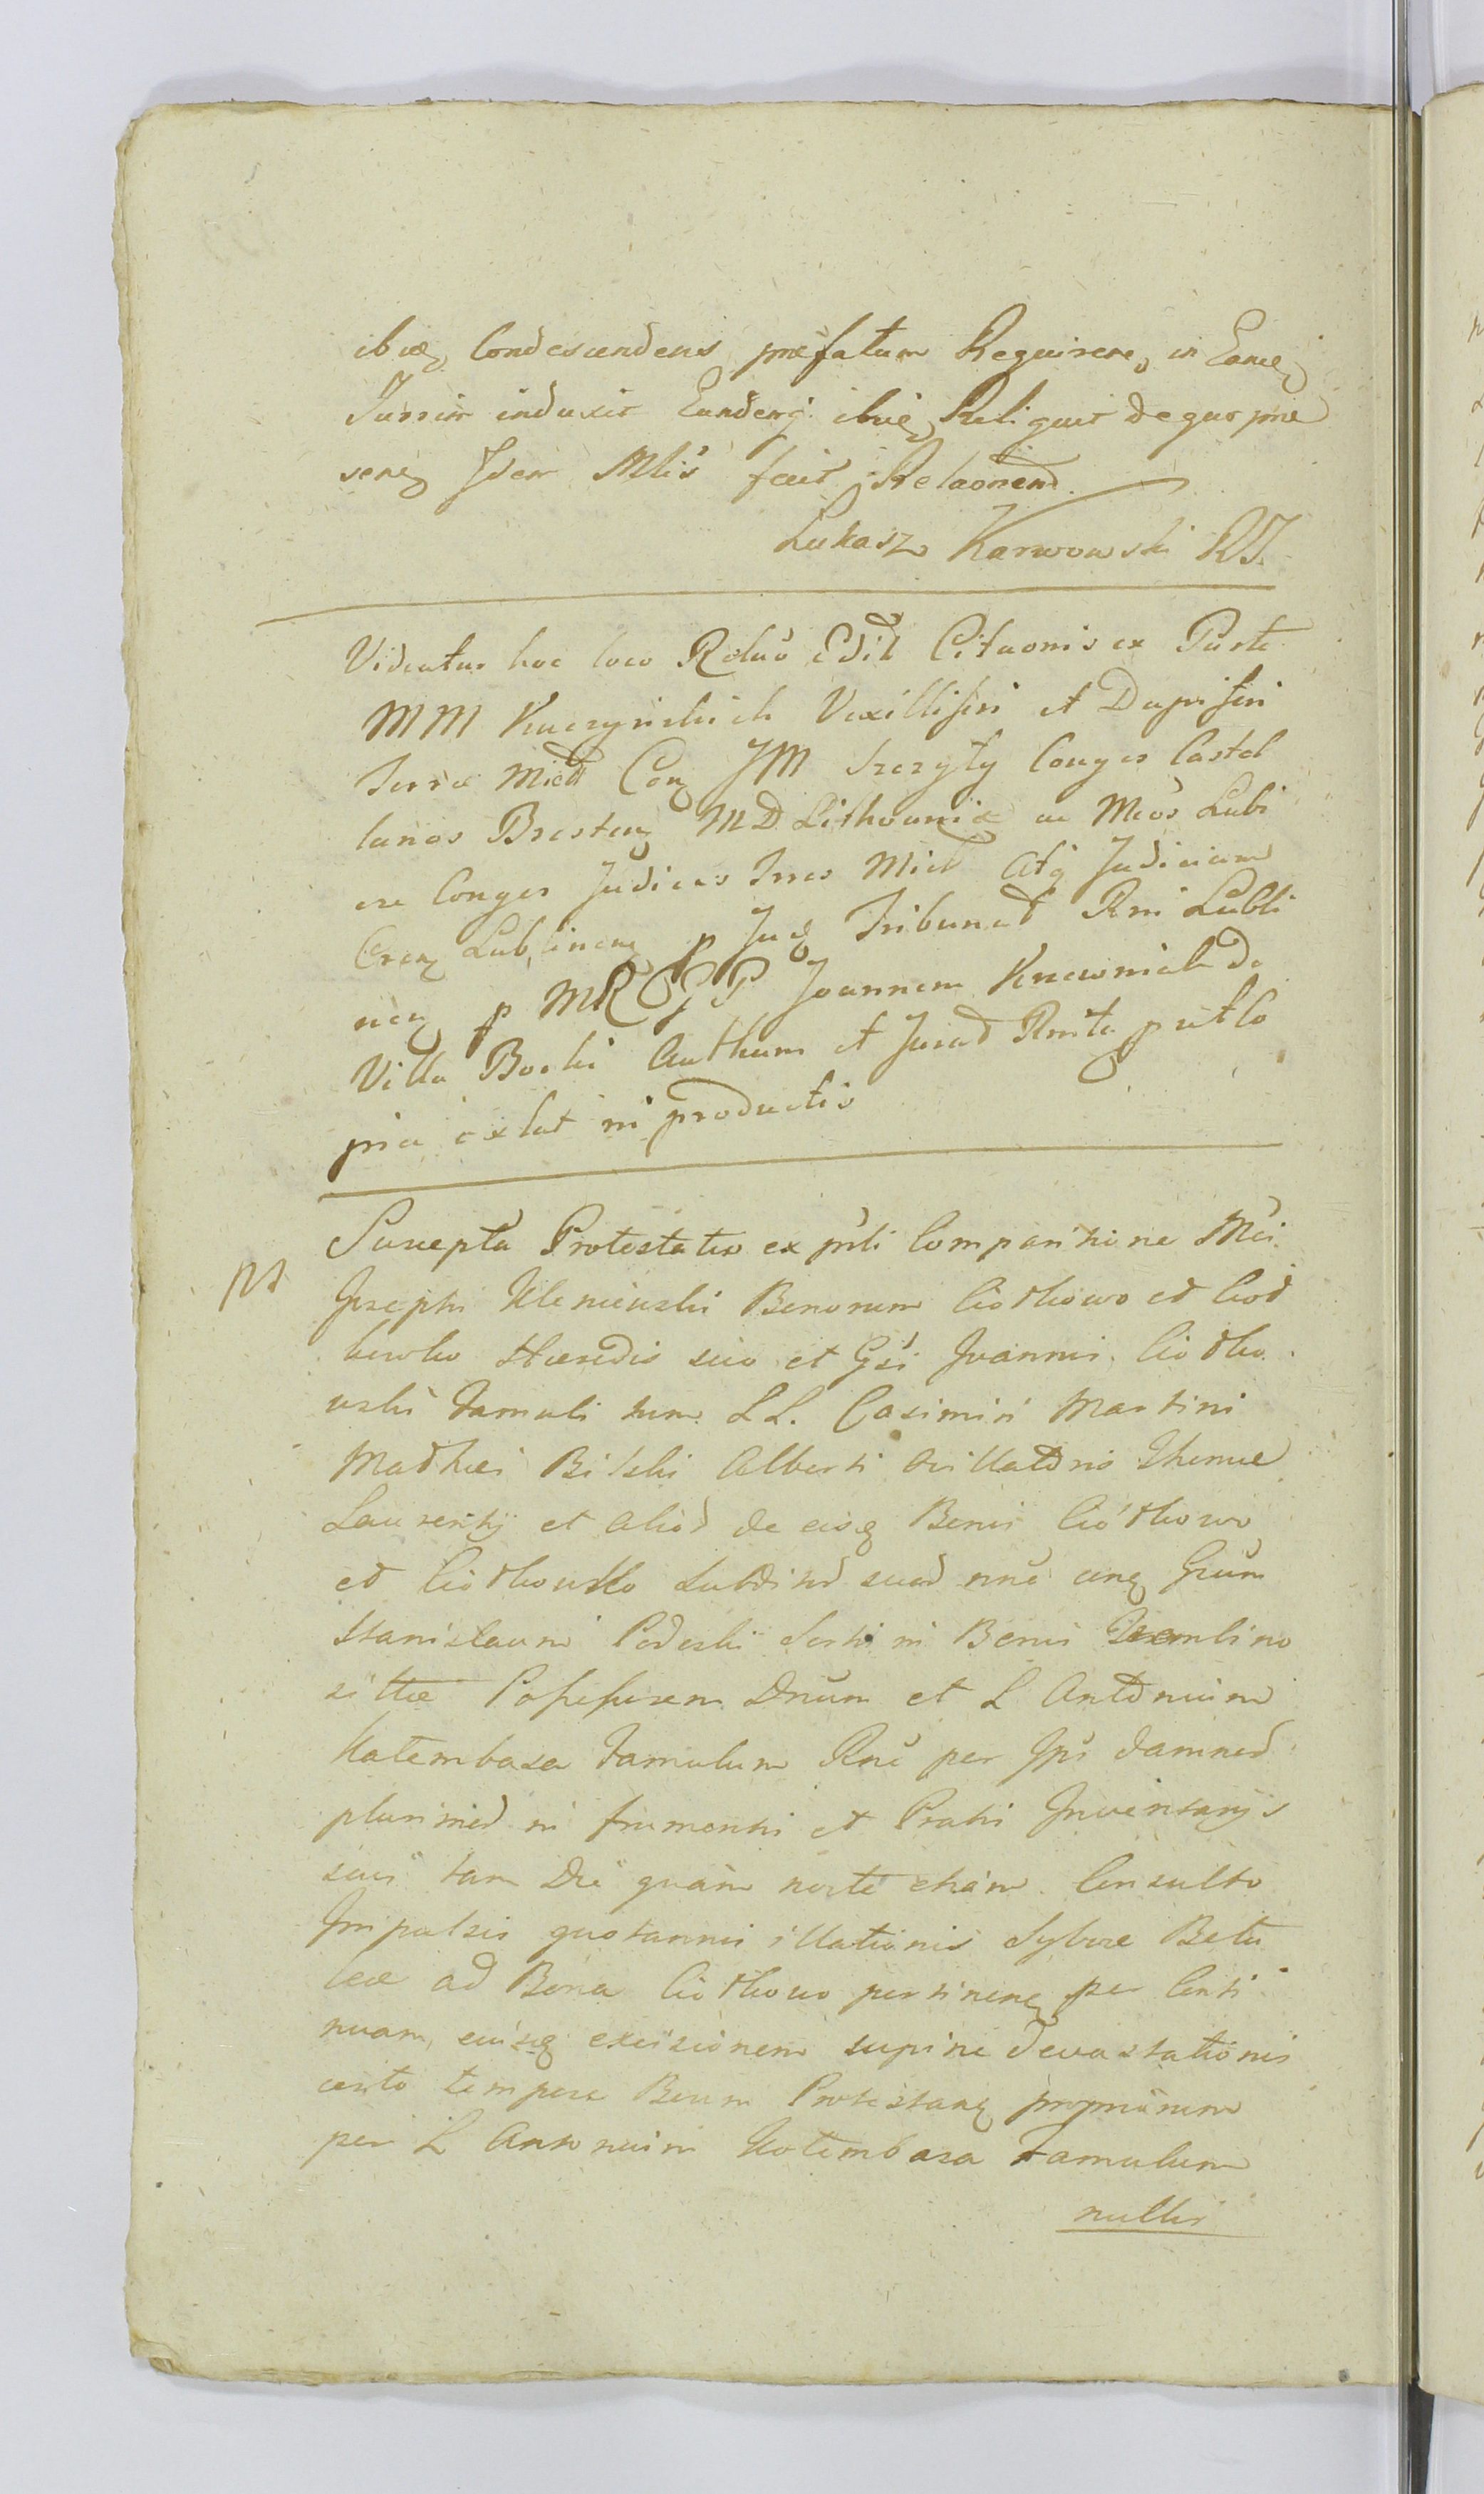 ibiq Condescendens præfatum Requirere, in Eamq
Iussim induxit Eandemq. ibiq Reliquit de quo præ
senq Idem Mlis fecit Relaonem
Łukasz Karwowski RT.
Videatur hoc loco Relaõ Edit Citaonis ex Parte
MM Kuczyńskich Vexilliferi et Dapiferi
Terræ Miel Conq JM Szczyty Conges Castel
lanos Bresten MD Lithvaniæ ac Mcos Lubi
cze Conges Judices Tres Miel Atq Judicium
Cren Lublinen p Judq Tribunal Rni Lubli
nen p MRCGP Joannem Knowniak De
Villa Boćki Authum et Jurad Rmta p
pria extat in productis
Suscepta Protestatio ex pñti Comparitione Mci
pt
Josephi Kleniewski Bonorum Ciołkowo et Cioł
kowko Hæredis suo et Gsi Joannis Ciołko
wski Famuli tum LL. Casimiri Martini
Mathei Bilski Alberti Thomæ
Laurentij et aliod de eisq Bonis Ciołkowo
et Ciołkowko Subditod suod nñe cenq Gsum
Stanislaum Podeski Sorti in Bonis Tremlino
sittæ Possessorem Dnum et L Antonium
Katembasa Famulum Rñe per Ipś damnod
plurimod in frumentis et Pratis Inventarijs
suis tam Die quam nocte etiam Consulto
Impulsis quotannis illationis Sylvæ Betu
leæ ad Bona Ciołkowo pertinenq per Conti
nuam, eiusq excisionem supine devastationis
certo tempore Boum Protestanq propriorum
per L Antonium Kotembasa Famulum
nullis